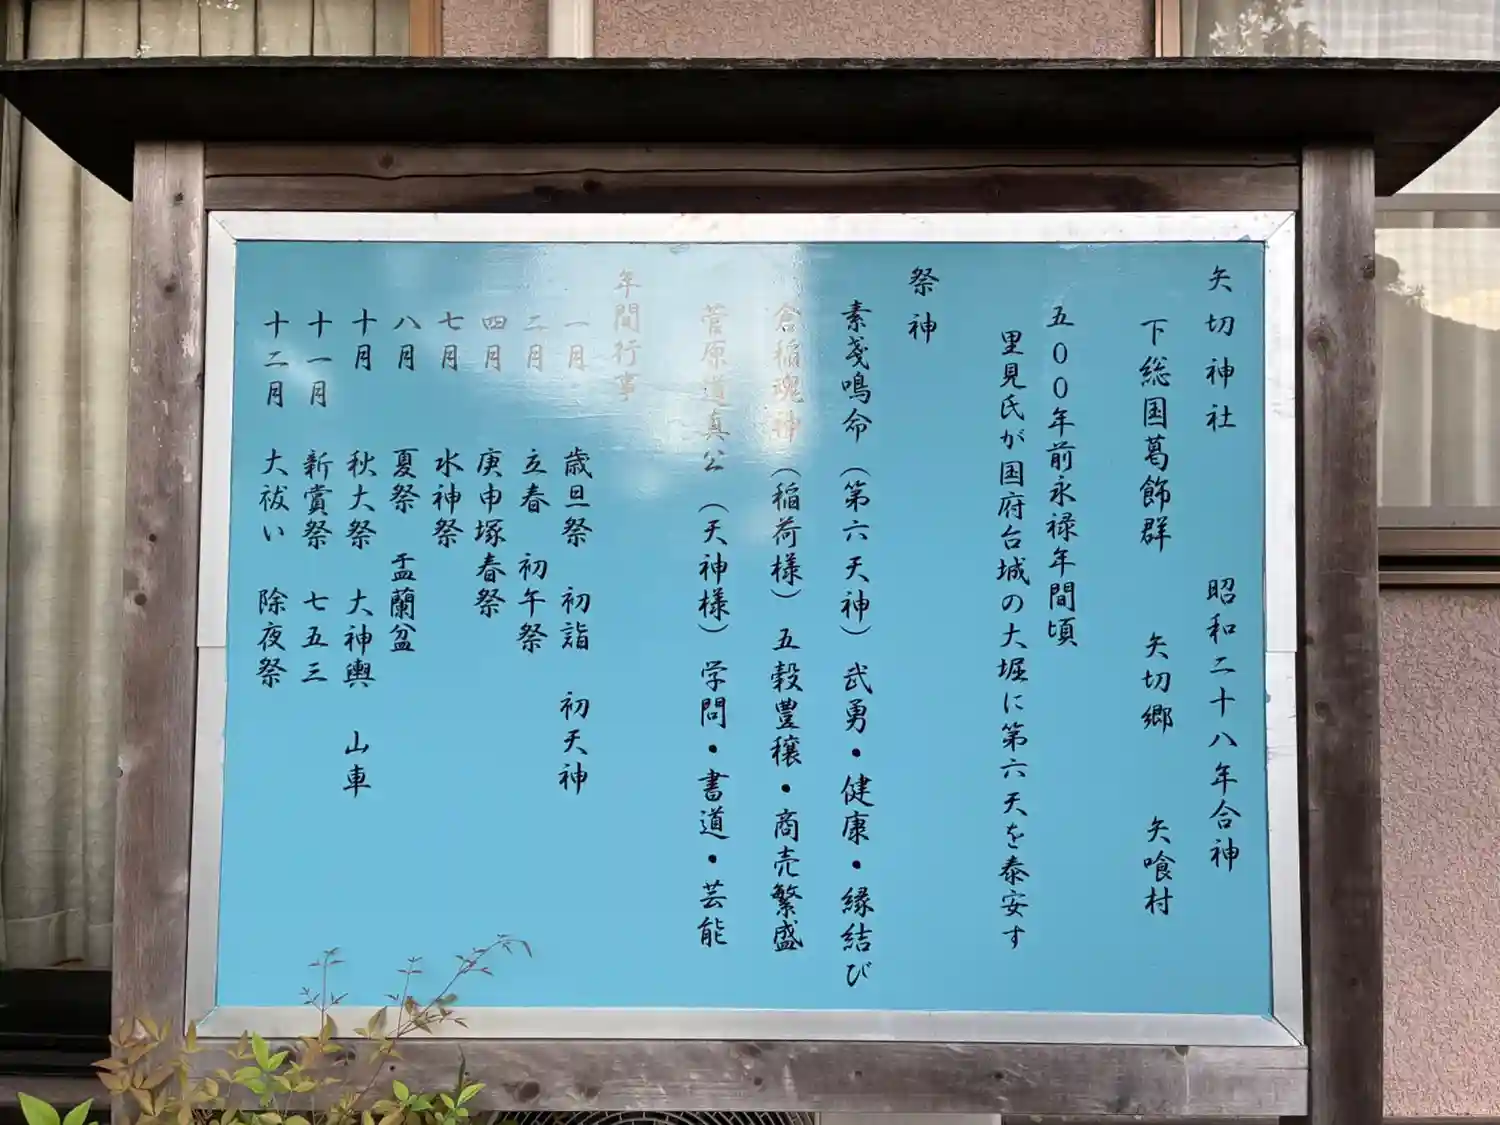 矢切神社　昭和二十八年合神
下総国葛飾群　矢切郷　矢喰村
五００年前永禄年間頃
里見氏が国府台城の大堀に第六天を泰安す
祭神
素戔鳴命（第六天神）武勇・健康・縁結び
倉稲魂神（稲荷様）五穀豊穣・商売繁盛
菅原道真公（天神様）学問・書道・芸能
年間行事
一月　歳旦祭　初詣　初天神
二月　立春　初午祭
四月　庚申塚春祭
七月　水神祭
八月　夏祭　盂蘭盆
十月　秋大祭　大神輿　山車
十一月　新嘗祭　七五三
十二月　大祓い　除夜祭